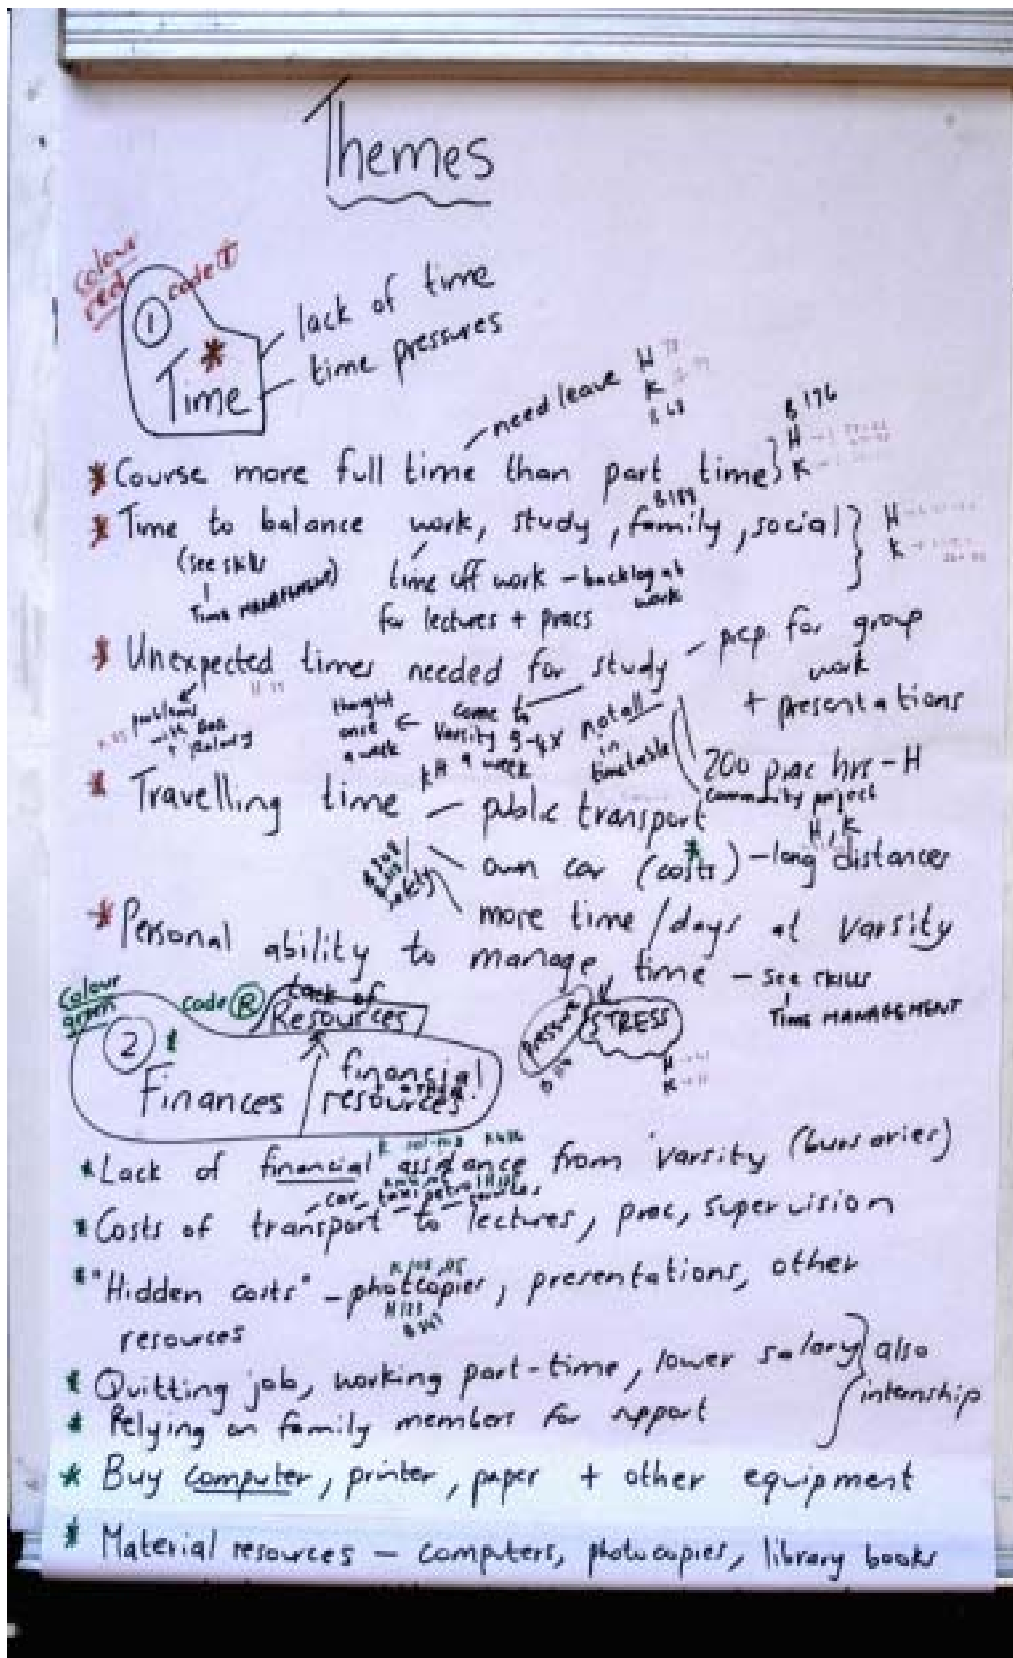 Themes
Colour
red
code T
1
Time
lack of time
time pressures
need leave
H
K
B 68
B 176
H
K
* Course more full time than part time
B 189
* Time to balance work, study, family, social
H
K
(see skills
TIME MANAGEMENT)
time off work - backlog at
work
for lectures + pracs
* Unexpected times needed for study
prep. for group
work
+ presentations
problems
with
+ salary
thought
once
a week
come to
varsity 3-4x
a week
KH
not all
in
timetable
200 prac hrs - H
community project
H, K
* Travelling time
public transport
own car (costs) - long distances
safety
more time/days at varsity
* Personal ability to manage time - see skills
TIME MANAGEMENT
PRESSURE
STRESS
H
K
Colour
green
code R
Lack of
Resources
2
Finances
financial
resources
* Lack of financial assistance from varsity (bursaries)
car taxi petrol
* Costs of transport to lectures, prac, supervision
* "Hidden costs" - photcopier, presentations, other
resources
* Quitting job, working part-time, lower salary
also
internship
* Relying on family members for support
* Buy computer, printer, paper + other equipment
* Material resources - computers, photocopies, library books